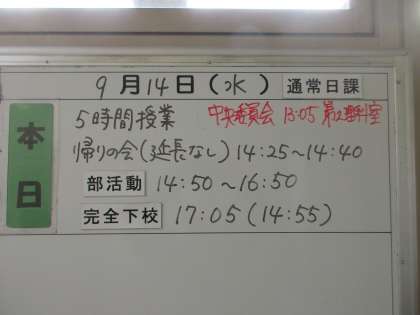 9月14日(水) 通常日課
本日
5時間授業 中央委員会 13:05 第2理科室
帰りの会(延長なし) 14:25~14:40
部活動 14:50~16:50
完全下校 17:05(14:55)